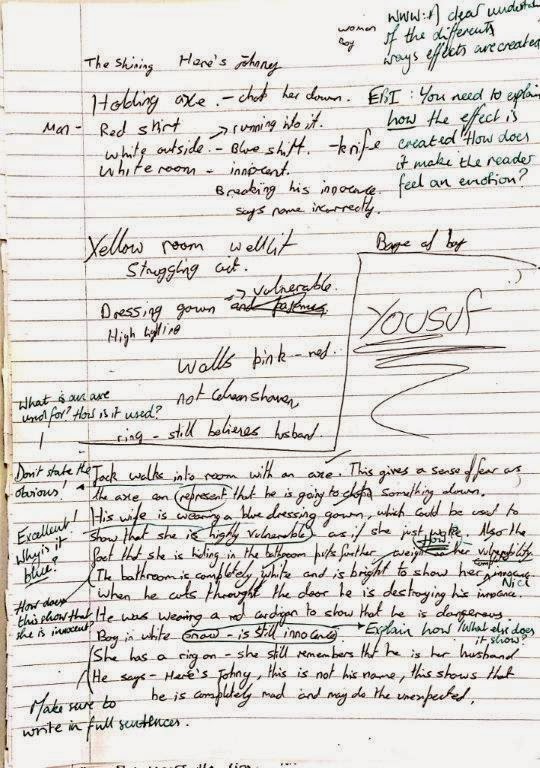 women
Boy
WWW: A clear understa
of the differents
ways effects are created
The Shining Here's Johnny
Holding axe. - chop her down.
EBI: You need to explain
how the effect is
created. How does
it make the reader
feel an emotion?
Man - Red shirt → running into it.
White outside. - Blue shift. - knife
White room - innocent.
Breaking his innocence.
says name incorrectly.
Yellow room well lit
Struggling out.
Dressing gown → vulnerable.
High lighting
Walls pink - red.
not cleanshaven
ring - still believes husband.
of boy
Yousuf
What is an axe
used for? How is it used?
Don't state the
obvious!
Jack walks into room with an axe. This gives a sense of fear as
the axe can represent that he is going to chop something down.
His wife is wearing a blue dressing gown, which could be used to
show that she is highly vulnerable as if she just woke. Also the
fact that she is hiding in the bathroom puts further weight in her vulnerability.
How
The bathroom is completely white and is bright to show her innocence
Nice
when he cuts throught the door he is destroying his innocence.
He was wearing a red cardigan to show that he is dangerous
Boy in white snow - is still innocence → Explain how / What else does
it show?
She has a ring on - she still remembers that he is her husband
He says - Here's Johny, this is not his name, this shows that
he is completely mad and may do the unexpected.
Excellent!
Why is it
blue?
How does
this show that
she is innocent?
Make sure to
write in full sentences.